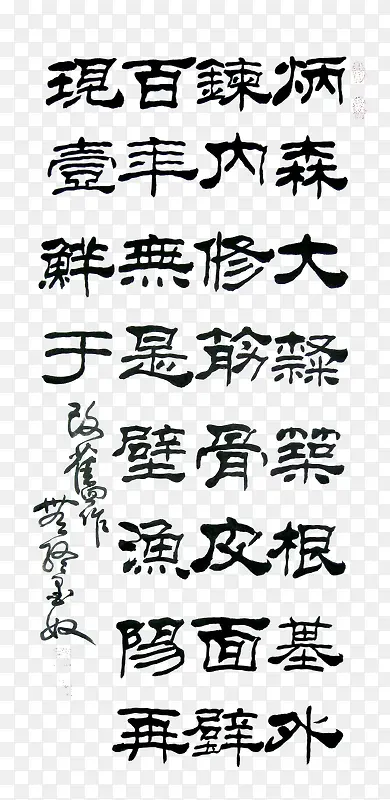 炳森大隸築根基外
鍊内修筋骨皮面壁
百年無是壁漁陽再
現壹鮮于
改舊作
墨奴